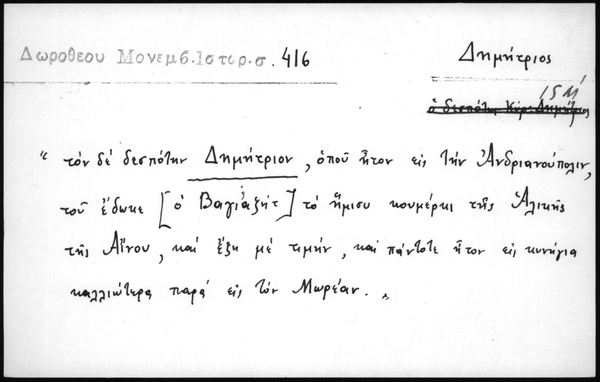 Δωροθεου Μονεμβ. Ιστορ. σ. 416
Δημήτριος
ὁ δεσπότης Κὺρ Δημήτριος
“ τὸν δὲ δεσπότην Δημήτριον, ὁποῦ ἦτον εἰς τὴν Ἀνδριανούπολιν,
τοῦ ἔδωκε [ὁ Βαγιαζὴτ] τὸ ἥμισυ κουμέρκι τῆς Ἁλικῆς
τῆς Αἴνου, καὶ ἔξη μὲ τιμήν, καὶ πάντοτε ἦτον εἰς κυνήγια
καλλιώτερα παρὰ εἰς τὸν Μωρέαν. „